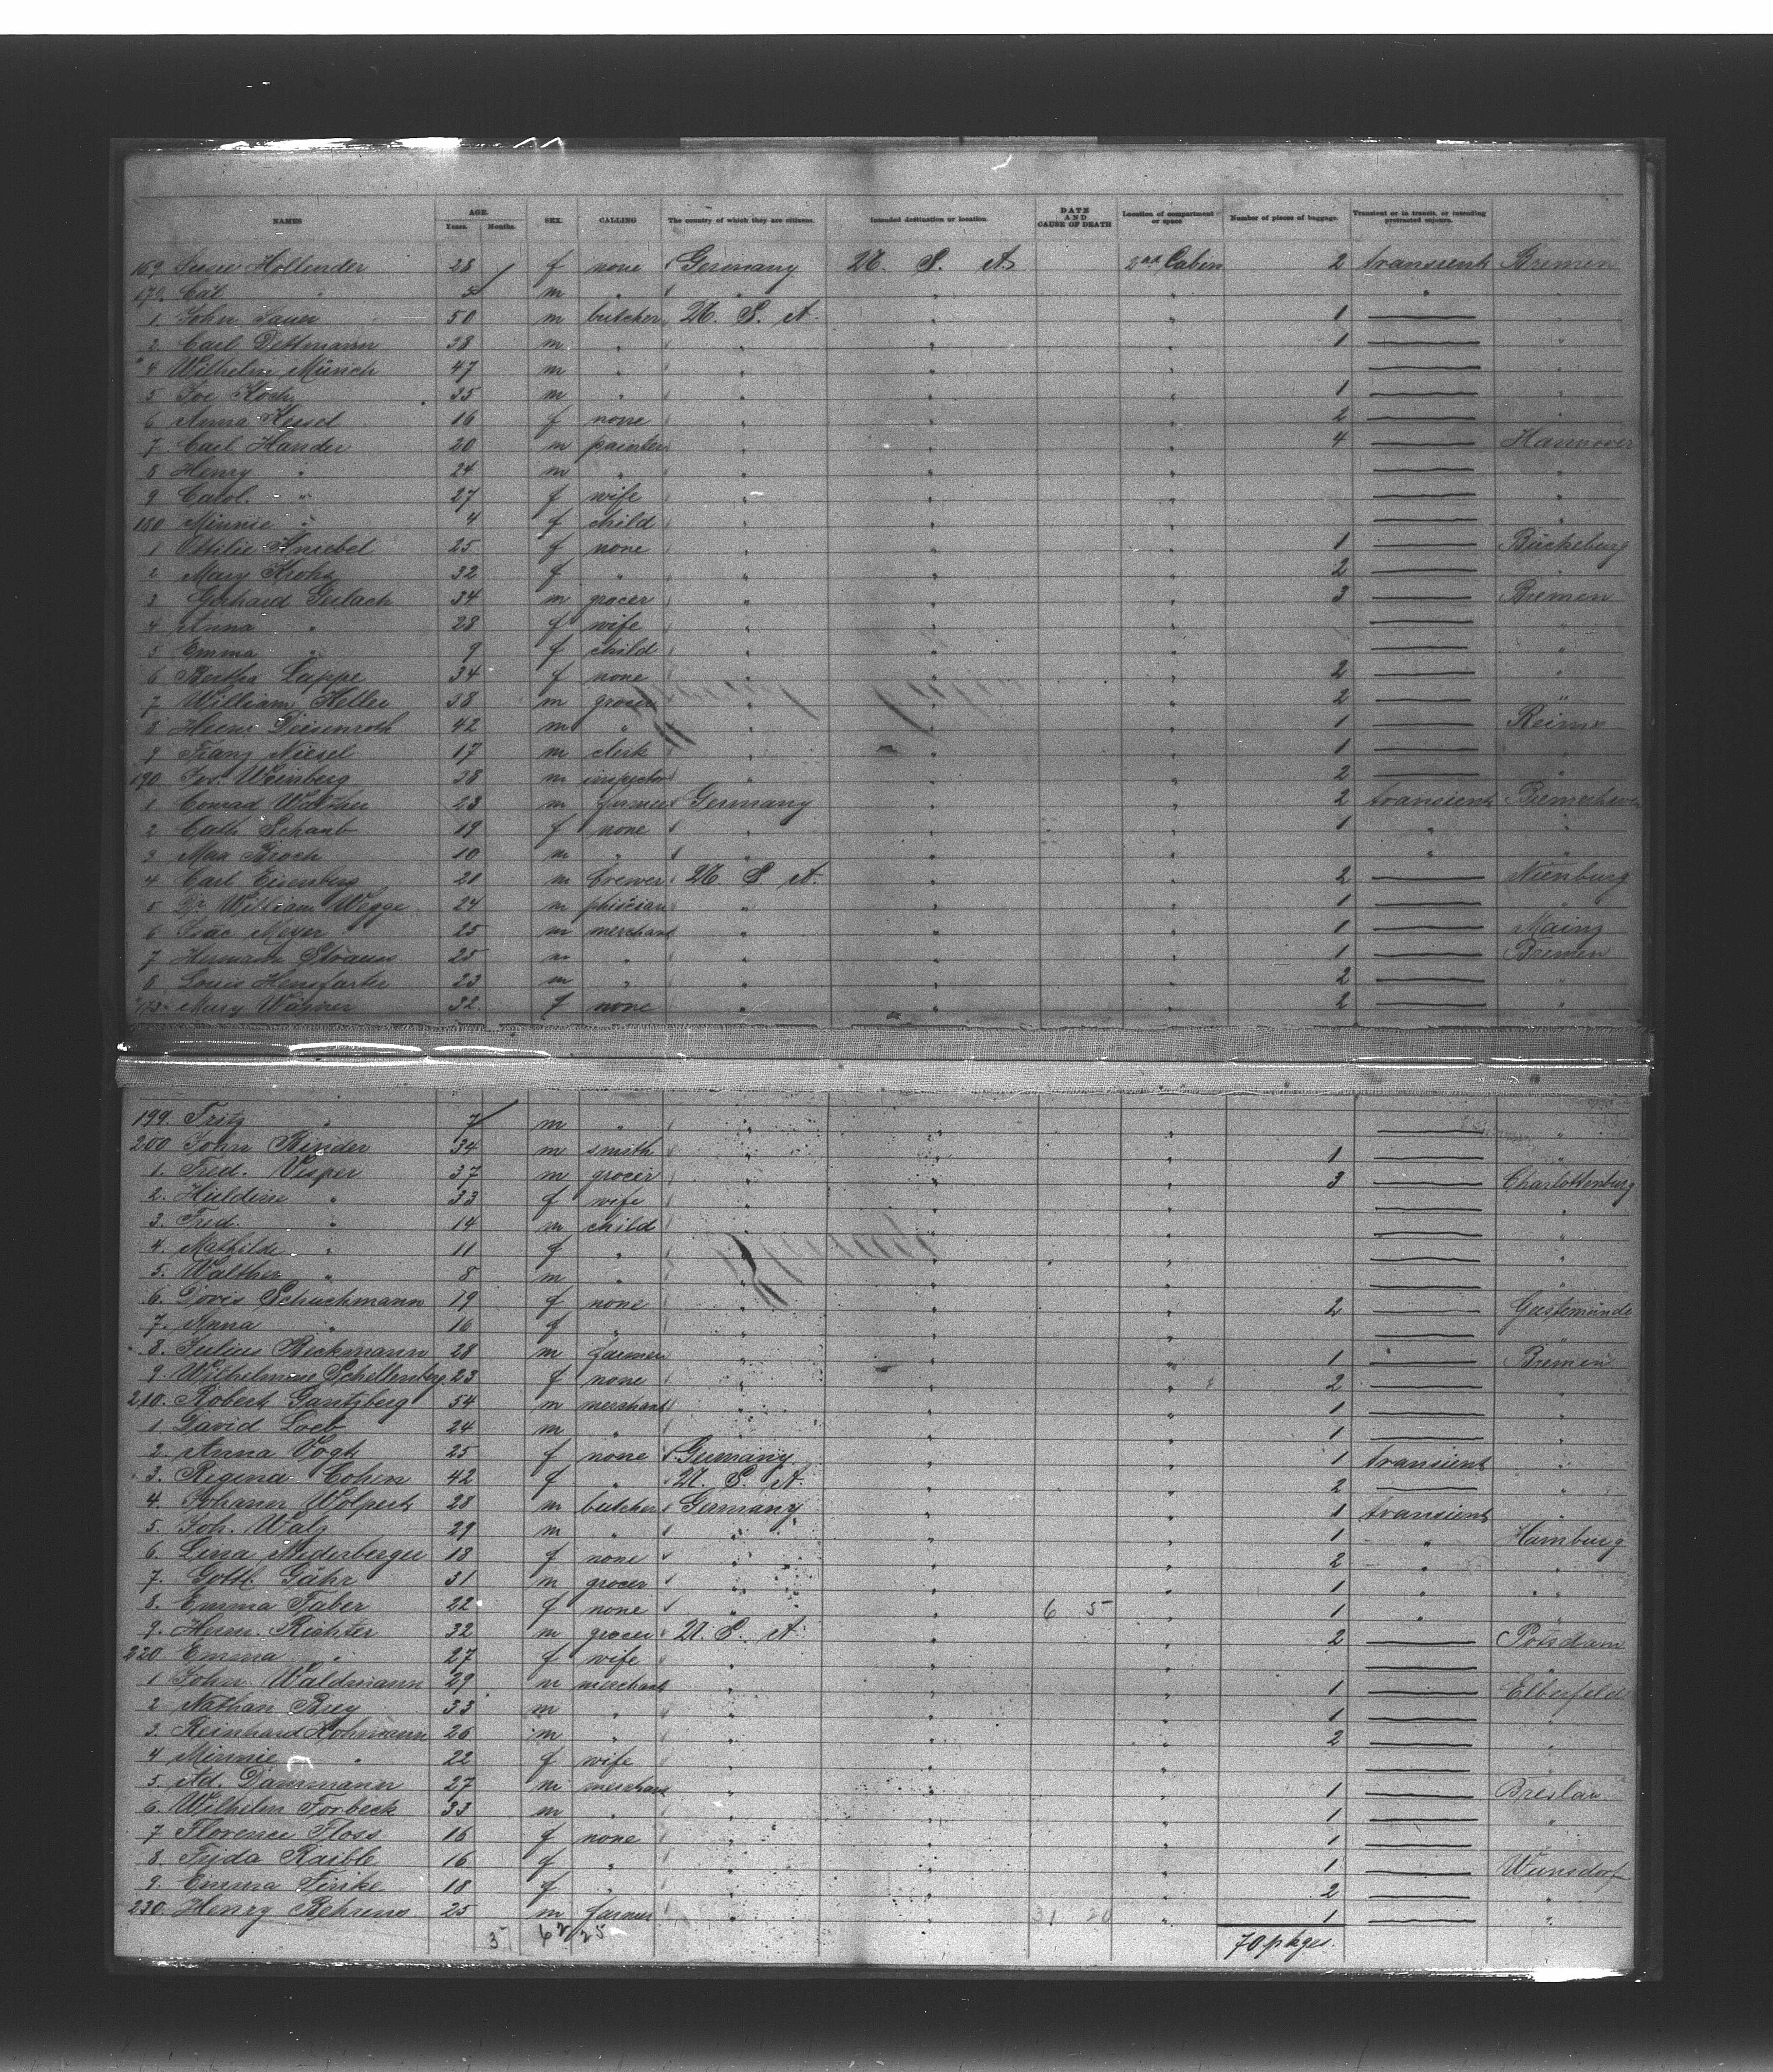 NAMES AGE. Years. Months. SEX. CALLING The country of which they are citizens. Intended destination or location. DATE AND CAUSE OF DEATH Location of compartment or space Number of pieces of baggage. Transient or in transit, or intending protracted sojourn.
169 Susie Hollender 28 f none Germany U. S. A. 2nd Cabin 2 transient Bremen
170 5 m " " " " "
1. John Sauer 50 m butcher U. S. A. " " 1 —
2. Carl Dettmann 38 m " " " " 1 — "
4 Wilhelm Münich 47 m " " " " — "
5 Joe Koch 35 m " " " " 1 — "
6 Anna 16 f none " " " 2 — "
7. Carl Hander 20 m painter " " " 4 — Hannover
8 Henry " 24 m " " " " — "
9 Carol. " 27 f wife " " " — "
180 Minnie " 4 f child " " " — "
1 Ottilie Kniebel 25 f none " " " 1 — Bückeburg
2 Mary Krohs 32 f " " " " 2 — "
3 Gerhard Gerlach 34 m grocer " " " 3 — Bremen
4 Anna " 28 f wife " " " — "
5 Emma " 9 f child " " " — "
6 Bertha Lappe 34 f none " " " 2 — "
7 William Heller 38 m grocer " " " 2 — "
8 Diesenroth 42 m " " " " 1 — Reims
9 Franz Niesel 17 m clerk " " " 1 — "
190 Weinberg 38 m inspector " " " 2 — "
1 Conrad Walther 23 m farmer Germany " " 2 transient Bremerhaven
2 Cath Schaub 19 f none " " " 1 " "
3 Max Broch 10 m " " " " " "
4 Carl Eisenberg 21 m brewer U. S. A. " " 2 — Nienburg
5 Dr William Wegge 24 m phisician " " " 1 — "
6 Isac Meyer 25 m merchant " " " 1 — Mainz
7 Hermann Strauss 25 m " " " " 1 — Bremen
8 Louis 23 m " " " " 2 — "
Mary Wagner 32. f none " " " 2 — "
199. Fritz " 7 m " " " " — "
200 John Binder 34 m smith " " " 1 — "
1. Fred. Vesper 37 m grocer " " " 3 — Charlottenburg
2. " 33 f wife " " " — "
3. Fred. " 14 m child " " " — "
4. Mathilde " 11 f " " " " — "
5. Walther " 8 m " " " " — "
6. Doris Schuchmann 19 f none " " " 2 — Geestemünde
7. Anna " 16 f " " " " — "
8. Julius Beckmann 28 m farmer " " " 1 — Bremen
9. Wilhelmine Schellenberg 23 f none " " " 2 — "
210. Robert Gantzberg 54 m merchant " " " 1 — "
1 David Loeb 24 m " " " " 1 — "
2. Anna Vogt 25 f none Germany " " 1 transient "
3. Regina Cohen 42 f " U. S. A. " " 2 — "
4. Johann Wolpert 28 m butcher Germany " " 1 transient "
5. Joh. Walz 29 m " " " " 1 " Hamburg
6. Lina Niederberger 18 f none " " " 2 " "
7. Gottl. Gähr 31 m grocer " " " 1 " "
8. Emma Faber 22 f none " " 6 5 " 1 " "
9. Herm. Richter 32 m grocer U. S. A. " " 2 — Potsdam
220 Emma " 27 f wife " " " — "
1 John Waldmann 29 m merchant " " " 1 — Elberfeld
2 Nathan 33 m " " " " 1 — "
3. Reinhard Hohmann 26 m " " " " 2 — "
4 Minnie " 22 f wife " " " — "
5. Ad. Dammann 27 m merchant " " " 1 — Breslau
6. Wilhelm Torbeck 33 m " " " " 1 — "
7 Florence Floss 16 f none " " " 1 —
8. Frida Raible 16 f " " " " 1 — Wunsdorf
9. Emma Finke 18 f " " " " 2 — "
230. Henry Behrens 25 m farmer " " 31 26 " 1 — "
3 62 25 70 pkges.